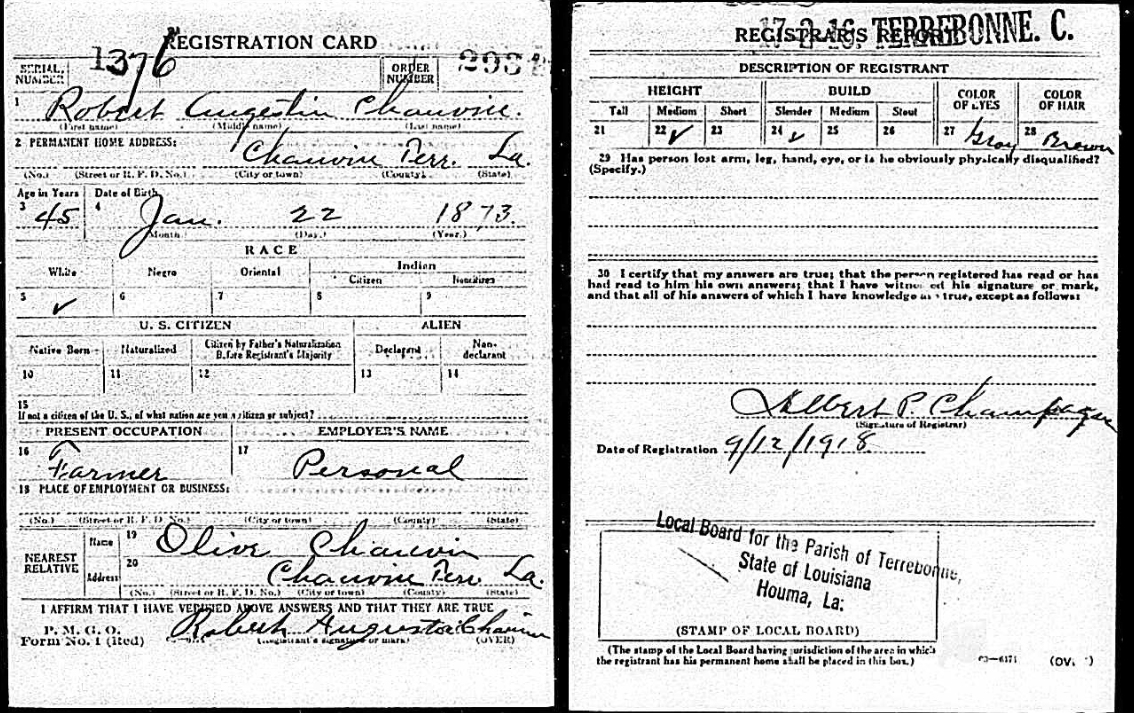 REGISTRATION CARD
SERIAL NUMBER 1376 ORDER NUMBER
1 Robert Augestin Chauvin.
(First name) (Middle name) (Last name)
2 PERMANENT HOME ADDRESS:
Chauvin Terr. La.
(No.) (Street or R. F. D. No.) (City or town) (County) (State)
Age in Years Date of Birth
3 45 4 Jan. 22 1873.
(Month.) (Day.) (Year.)
RACE
White Negro Oriental Indian
Citizen Noncitizen
5 ✓ 6 7 8 9
U. S. CITIZEN ALIEN
Native Born Naturalized Citizen by Father's Naturalization Before Registrant's Majority Declarant Non-declarant
10 11 12 13 14
15
If not a citizen of the U. S., of what nation are you a citizen or subject?
PRESENT OCCUPATION EMPLOYER'S NAME
16 Farmer 17 Personal
18 PLACE OF EMPLOYMENT OR BUSINESS:
(No.) (Street or R. F. D. No.) (City or town) (County) (State)
NEAREST RELATIVE Name 19 Olive Chauvin
Address 20 Chauvin Terr. La.
(No.) (Street or R. F. D. No.) (City or town) (County) (State)
I AFFIRM THAT I HAVE VERIFIED ABOVE ANSWERS AND THAT THEY ARE TRUE
P. M. G. O.
Form No. 1 (Red) Robert Chauvin
(Registrant's signature or mark) (OVER)
17-2-16 TERREBONNE. C.
REGISTRAR'S REPORT
DESCRIPTION OF REGISTRANT
HEIGHT BUILD COLOR OF EYES COLOR OF HAIR
Tall Medium Short Slender Medium Stout
21 22 ✓ 23 24 ✓ 25 26 27 Gray 28 Brown
29 Has person lost arm, leg, hand, eye, or is he obviously physically disqualified?
(Specify.)
30 I certify that my answers are true; that the person registered has read or has
had read to him his own answers; that I have witnessed his signature or mark,
and that all of his answers of which I have knowledge are true, except as follows:
Albert P. Champagne
(Signature of Registrar)
Date of Registration 9/12/1918
Local Board for the Parish of Terrebonne,
State of Louisiana
Houma, La:
(STAMP OF LOCAL BOARD)
(The stamp of the Local Board having jurisdiction of the area in which
the registrant has his permanent home shall be placed in this box.)
03—6171 (OVER)